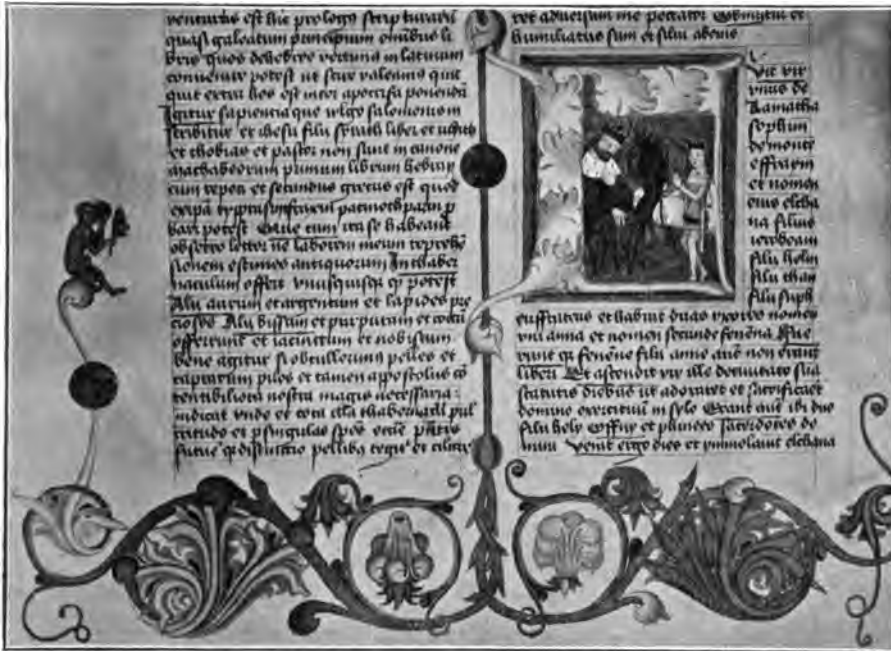 est hic prologo scripturarū
quasi galeatum principium omnibus li
bris quos de hebreo vertimus in latinum
convenire potest ut scire valeamus quic
quit extra hos est inter apocrifa ponendū
Igitur sapiencia que wlgo salomonis in
scribitur et ihesu filii syrach liber et iudith
et thobias et pastor non sunt in canone
machabeorum primum librum hebray
cum reperi et secundus grecus est quod
bari potest Que cum ita se habeant
obsecro lector ne laborem meum reprehē
sionem estimes antiquorum In thaber
naculum offert vnusquisq qd potest
Alii aurum et argentum et lapides pre
ciosos Alii bissum et purpuram et coccū
offerunt et iacinctum et nobiscum
bene agitur si obtullerimus pelles et
caprarum pilos et tamen appostolus cō
tentibiliora nostra magis necessaria
iudicat vnde et tota illa thabernaculi pul
critudo et p singulas spēs
future distinctio pellibus et
ret adversum me peccator Obmutui et
humiliatus sum et silui a bonis
Vit vir
vnus de
Ramatha
sophim
de monte
effraym
et nomen
eius elcha
na filius
ieroboam
filii heliu
filii thau
filii suph
euffrateus et habuit duas vxores nomen
vni anna et nomen secunde fenēna Fue
runt q fenēne filii anne autē non erant
liberi Et ascendit vir ille de civitate sua
statutis diebus ut adoraret et sacrificaēt
domino exercituū in sylo Erant autē ibi duo
filii hely Offny et phinees sacerdotes do
mini Venit ergo dies et ymmolavit elchana